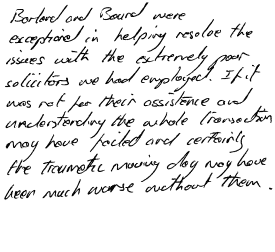 Borland and Bound were
exceptional in helping resolve the
issues with the extremely poor
solicitors we had employed. If it
was not for their assistance and
understanding the whole transaction
may have failed and certainly
the traumatic moving day may have
been much worse without them.